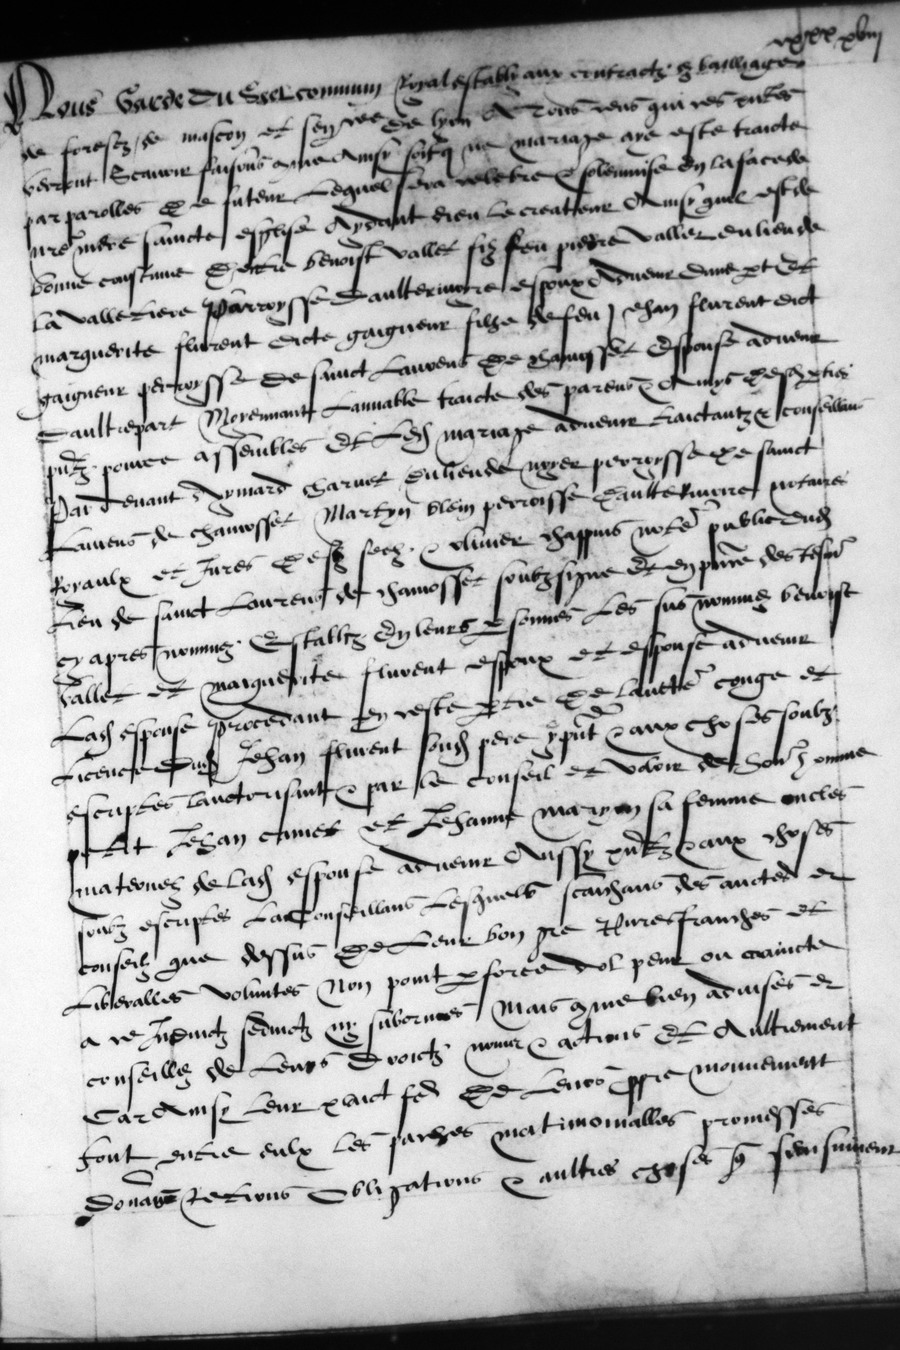 xbiii
Nous Garde du Seel commun Royal estably aux contractz es bailliages
de forestz de mascon et sen de lyon A Tous ceus qui ces
verront Scavoir faisons que Ainsy soit q ung mariage aye este traicte
par parolles de futeur Lequel sera celebre & solempnise En la face de
nre mere saincte esglise Aydant dieu le createur Ainsy quil est de
bonne coustume Entre benoist vallet filz feu pierre vallet du lieu de
la valletiere Parroysse daulterivoire espoux Advenir dune pt Et
marguerite flurent dicte gaigneur filhe de feu Jehan flurent dict
gaigneur perroysse de sainct Laurens de chamosset Espouse advenir
daultrepart Moyennant Lamiable traicte des parens & Amys desd pties
pour ce assembles Et Led mariage advenir traictantz & conseillans
Par devant Aymard charvet du lieu de noyer perroysse de sainct
Laurens de chamosset Martyn blein perroisse daulterivoire notaires
Royaulx et Jures & olivier chappuis note public dud
Lieu de sainct Laurens de chamosset soubzsigne Et en pnce des tesm
cy apres nommez Establiz En leurs psonnes Les sus nommez benoist
vallet et marguerite flurent espoux et espouse advenir
Lad espouse procedant En ceste ptie de laucte conge et
Licence dud Jehan flurent sond pere pnt & aux choses soubz
escriptes lauctorisant & par le conseil et vloir de hom
petit Jehan camet et Jehanne marion sa femme oncles
maternez de Lad espouse advenir Aussy pntz & aux choses
soubz escriptes La conseillans Lesquels scaichans des auctes et
conseilz que dessus De Leur bon gre pures franches et
Liberalles voluntes Non point p force dol peur ou craincte
a ce Induictz seductz ny subornes Mais que bien advises et
conseilles de Leurs droictz noms & actions Et Aultrement
Car Ainsy Leur plaict fe De Leurs ppre mouvement
font entre eulx les paches matrimonialles promesses
donaons Obligations & aultres choses q sensuivent